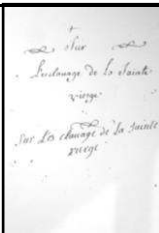 Sur
L'esclauage de la sainte
vierge.
Sur Les clauage de la sainte
vierge